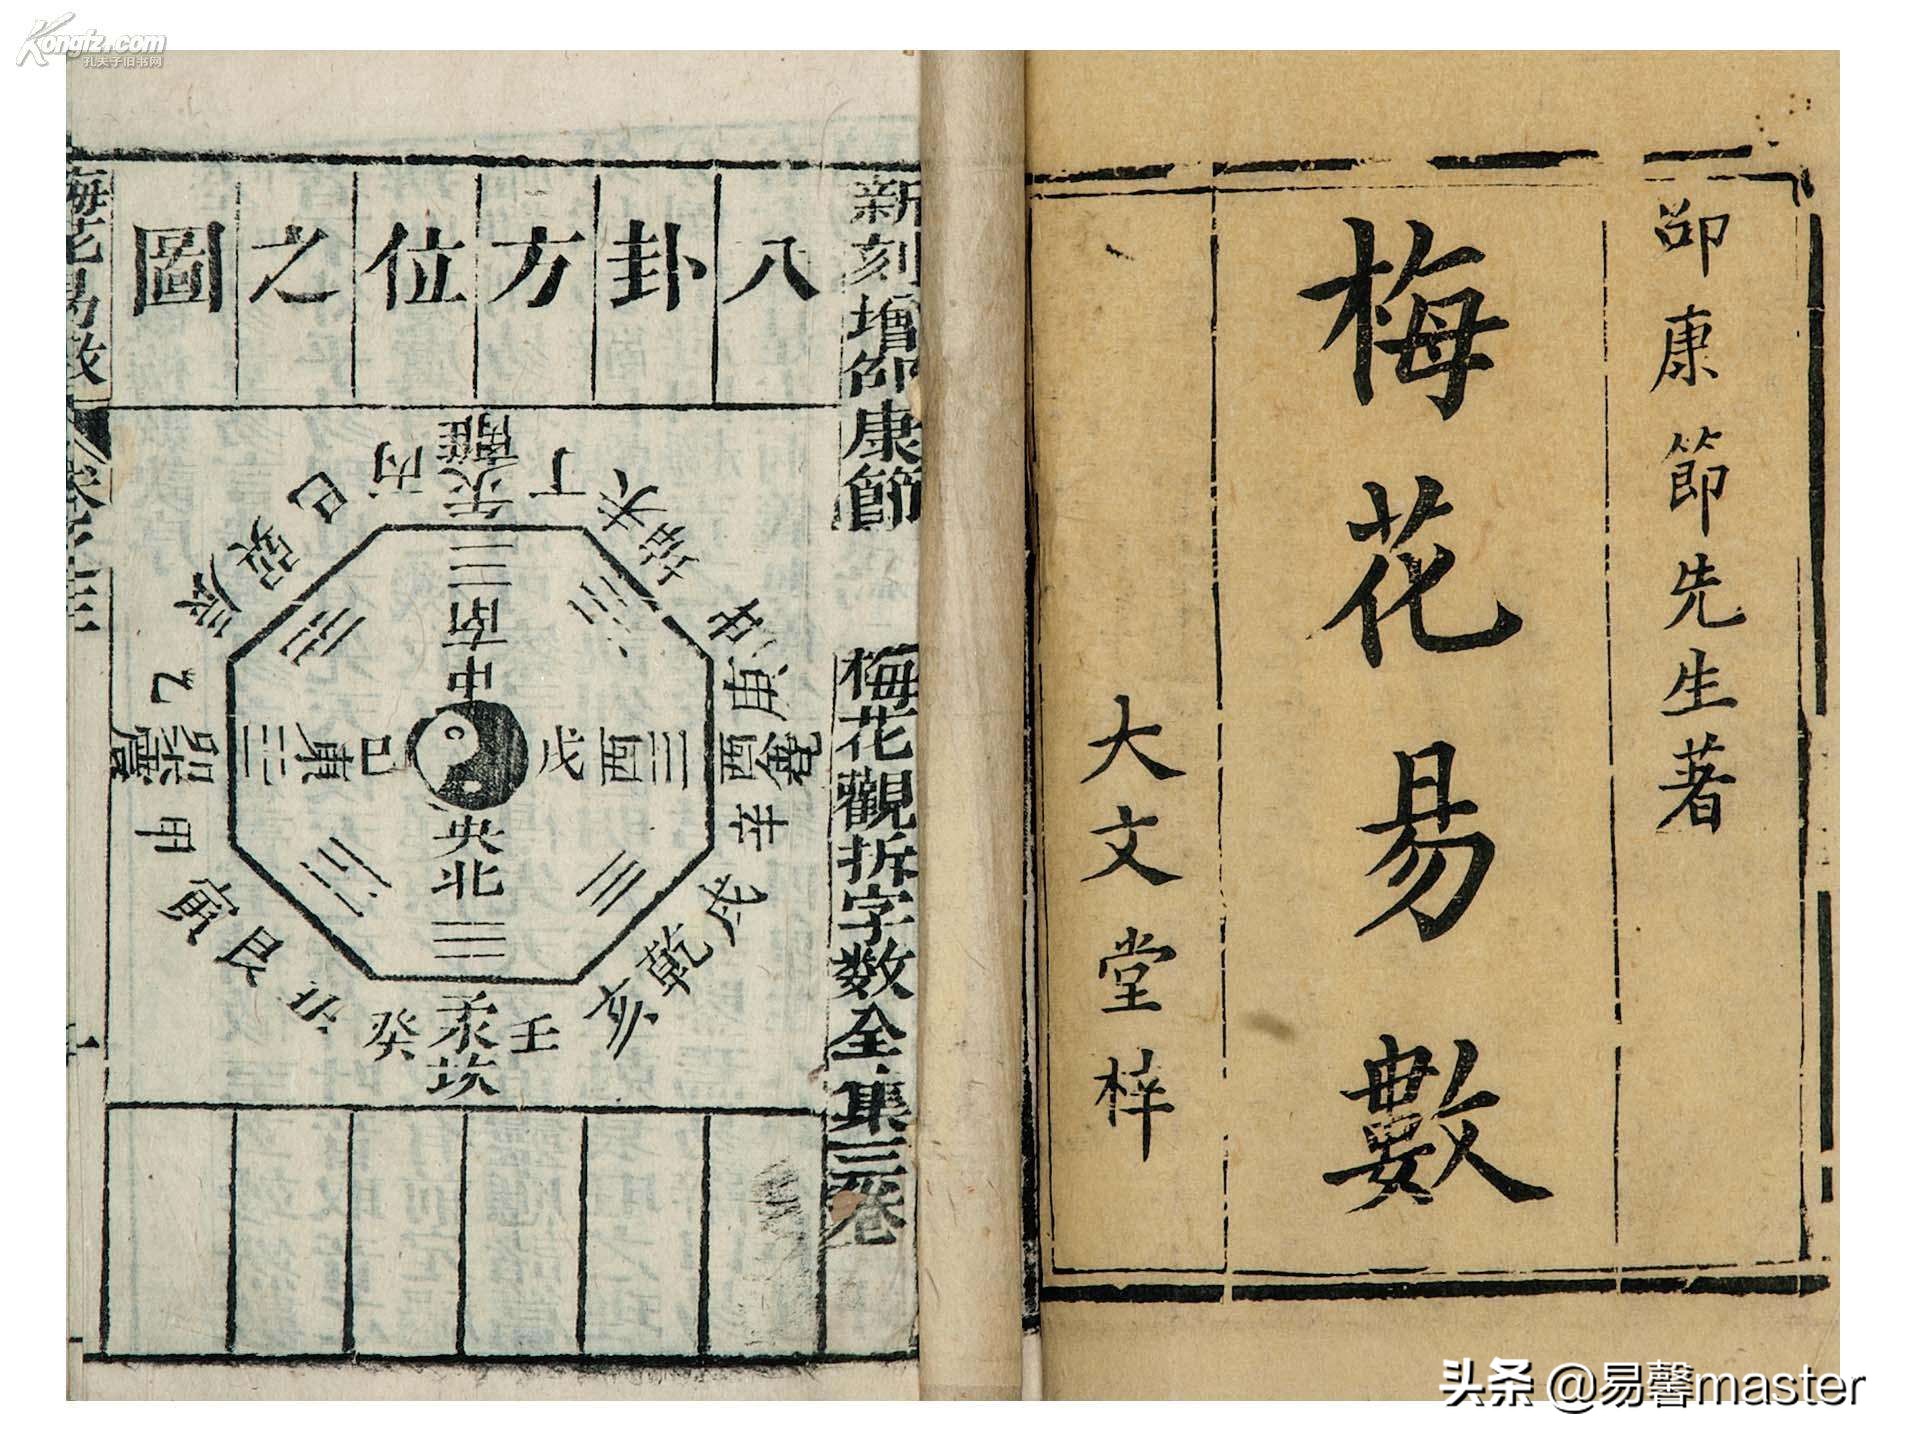 Kongfz.com
孔夫子旧书网
邵康節先生著
梅花易數
大文堂梓
新刻增邵康節 梅花觀拆字数全集三卷
八卦方位之圖
離
丙午丁
未坤申
庚酉兌辛
戌乾亥
壬子坎癸
丑艮寅
甲卯震乙
辰巽巳
南
中
東
戊
西
央
北
梅花易数
头条 @易馨master